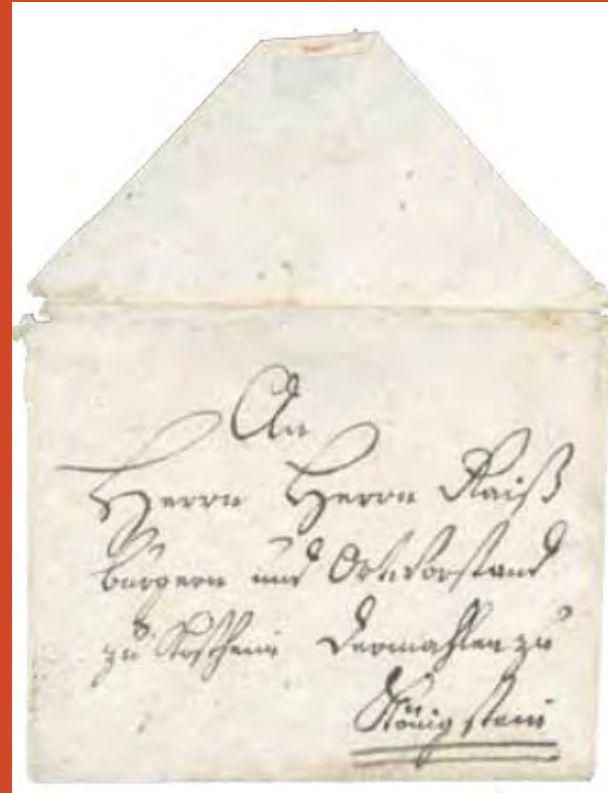 An
Herrn Herrn Raiß
burgern und Ortsvorstand
zu Kostheim dermahlen zu
Königstein